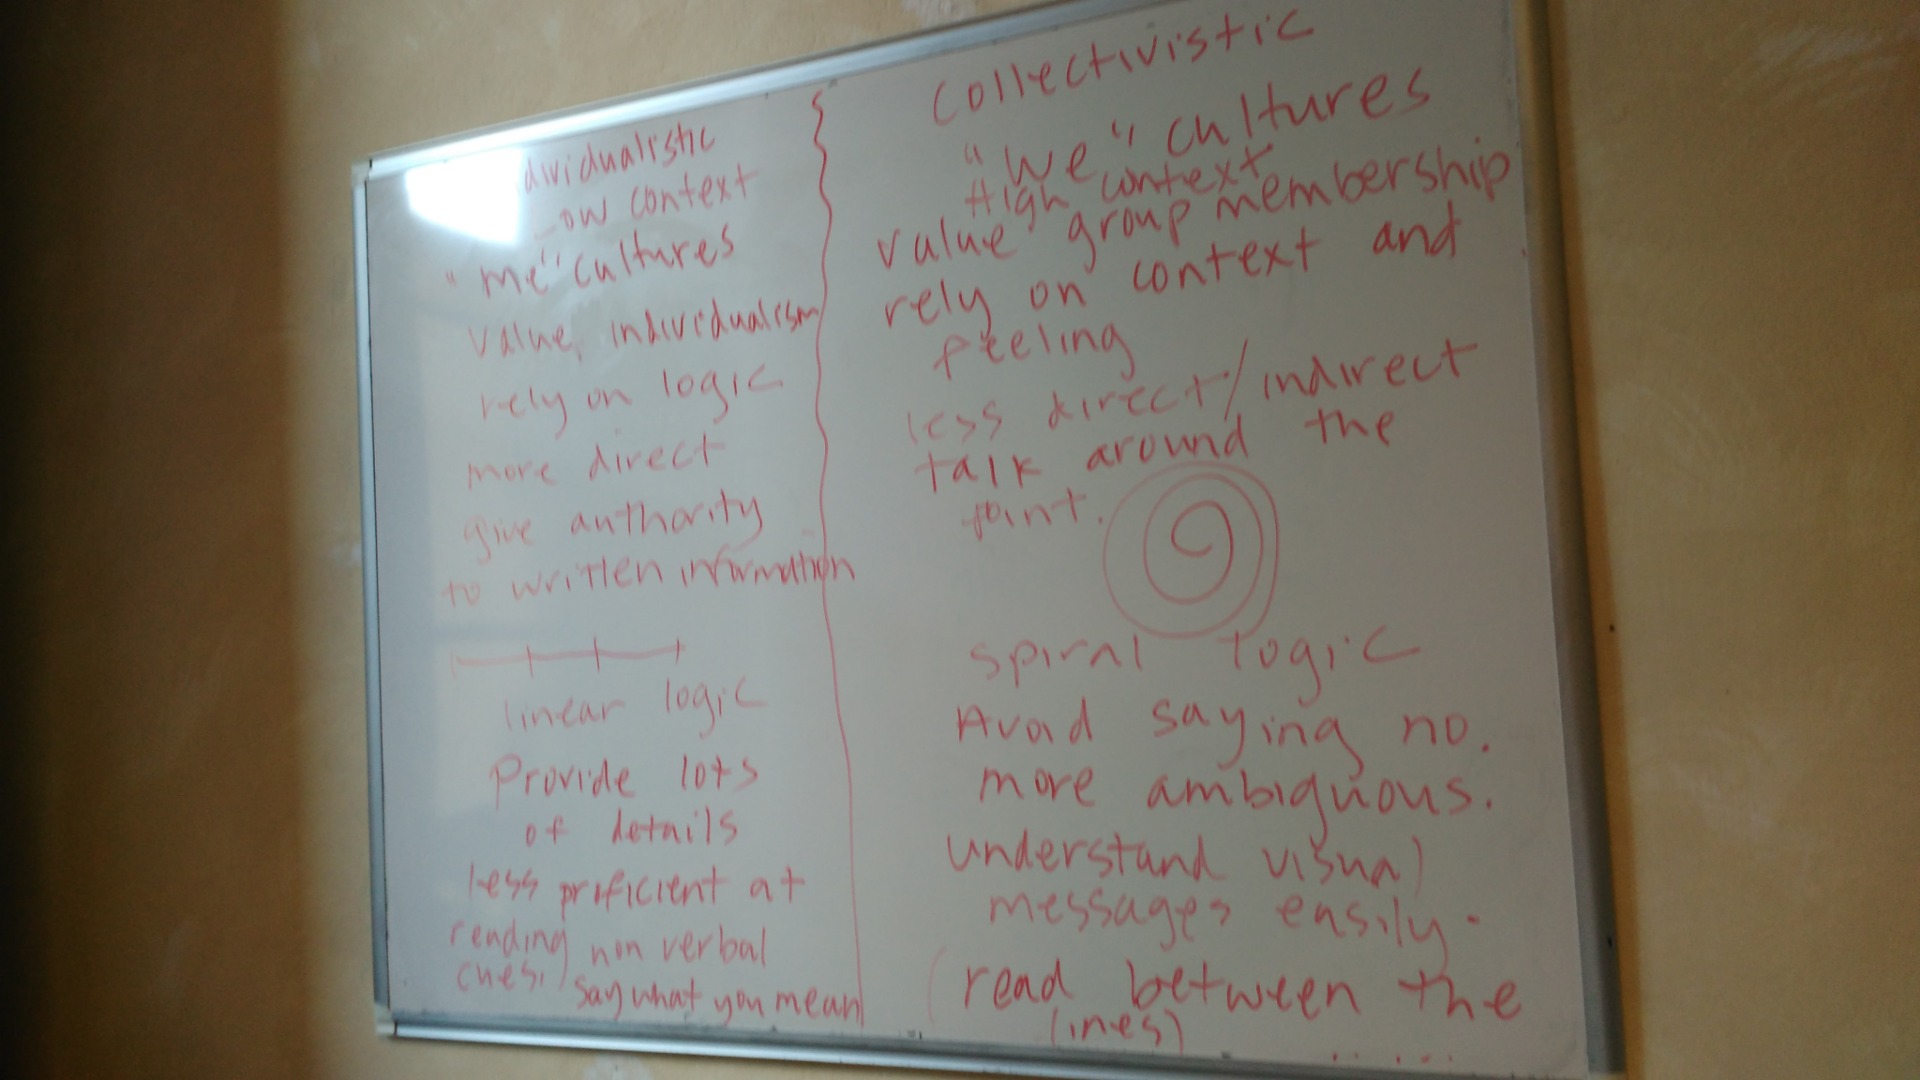 dividualistic
ow context
"me" cultures
value individualism
rely on logic
more direct
give authority
to written information
linear logic
Provide lots
of details
less proficient at
reading non verbal
cues.
say what you mean
Collectivistic
"we" cultures
High context
value group membership
rely on context and
feeling
less direct/indirect
talk around the
point.
spiral logic
Avoid saying no.
more ambiguous.
understand visual
messages easily.
(read between the
lines)